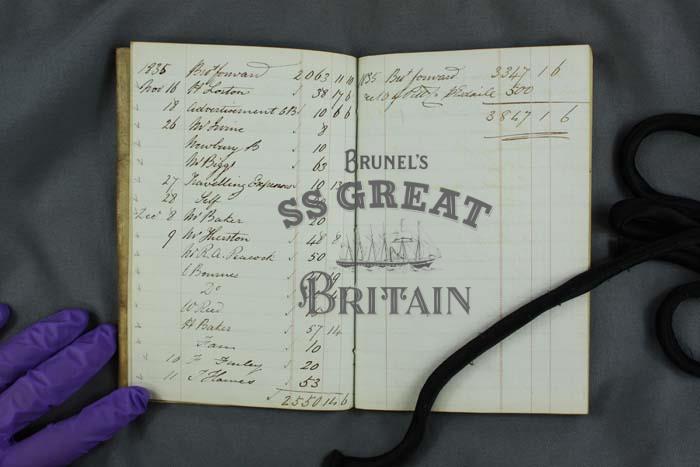 1835 Brot forward 2063 11 10
Novr 16 H Loston 38 17 6
18 Advertisement 10 6 6
26 Mr 8
Newbury B 10
Mr Biggs 63
27 Travelling Expences 10
28 Self
Decr 8 Mr Baker 20
9 Mr Thurston 48 8
Mr R.A. Peacock 50
Do
W Reed
H Baker 57 14
10
10 F Finley 20
11 J Hames 53
2550 14 6
1835 Brot forward 3347 1 6
500
3847 1 6
BRUNEL'S
SS GREAT
BRITAIN